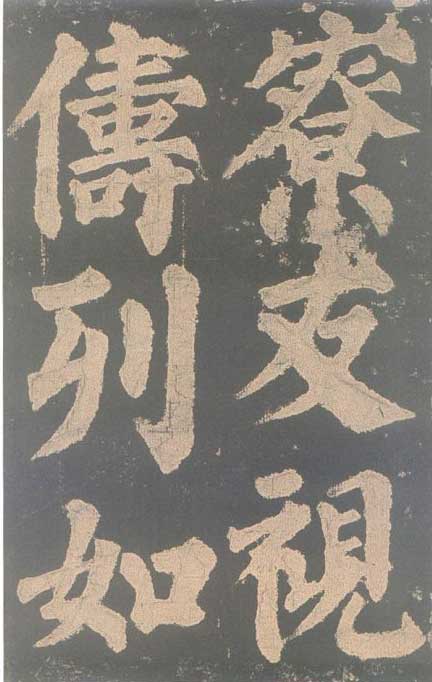 寮友視
儔列如